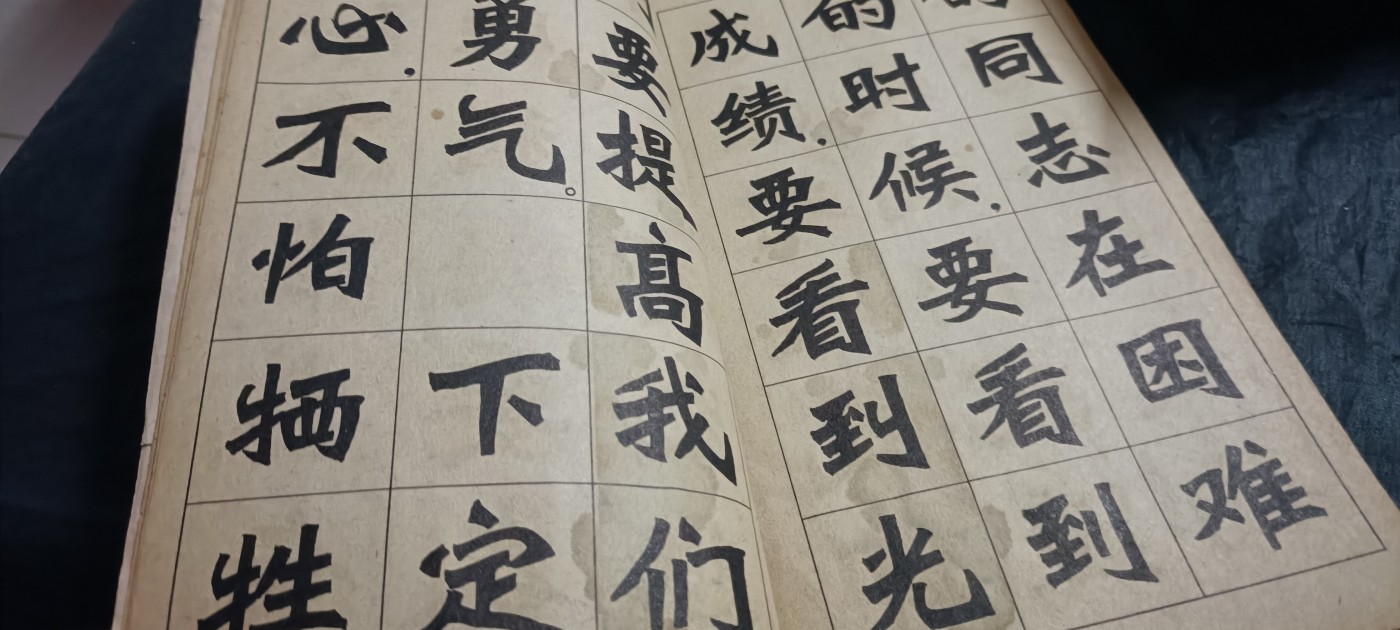 的同志在困难
的时候,要看到
成绩,要看到光
要提高我们
勇气。下定
心,不怕牺牲